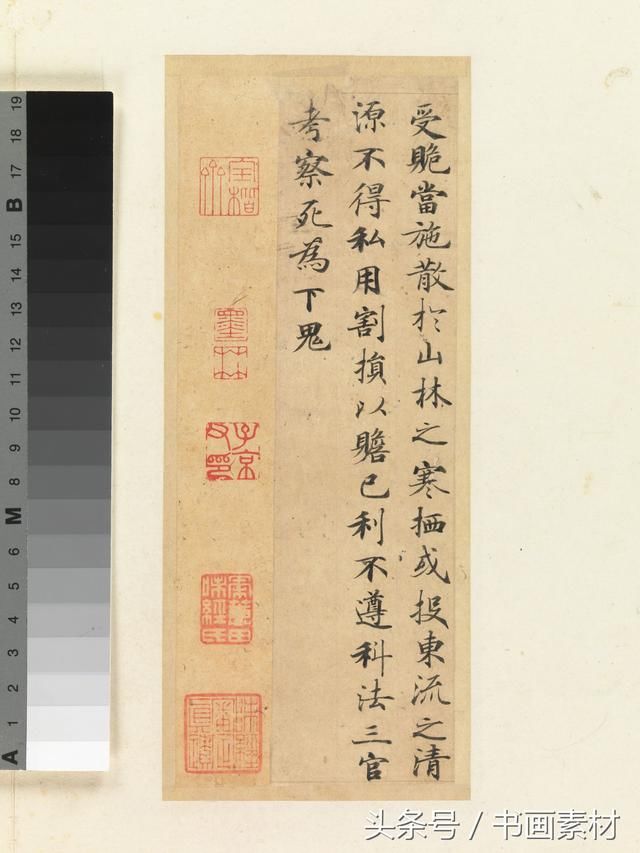 受賜當施散於山林之寒栖或投東流之清
源不得私用割損以贍已利不遵科法三官
考察死為下鬼
墨林
子京父印
19
18
17
B
15
14
13
12
11
10
9
8
M
6
5
4
3
2
1
A
头条号 / 书画素材